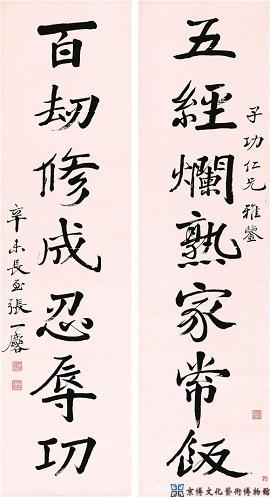 子功仁兄雅鑒
五經爛熟家常飯
百劫修成忍辱功
辛未長至張一麐
京博文化藝術博物館